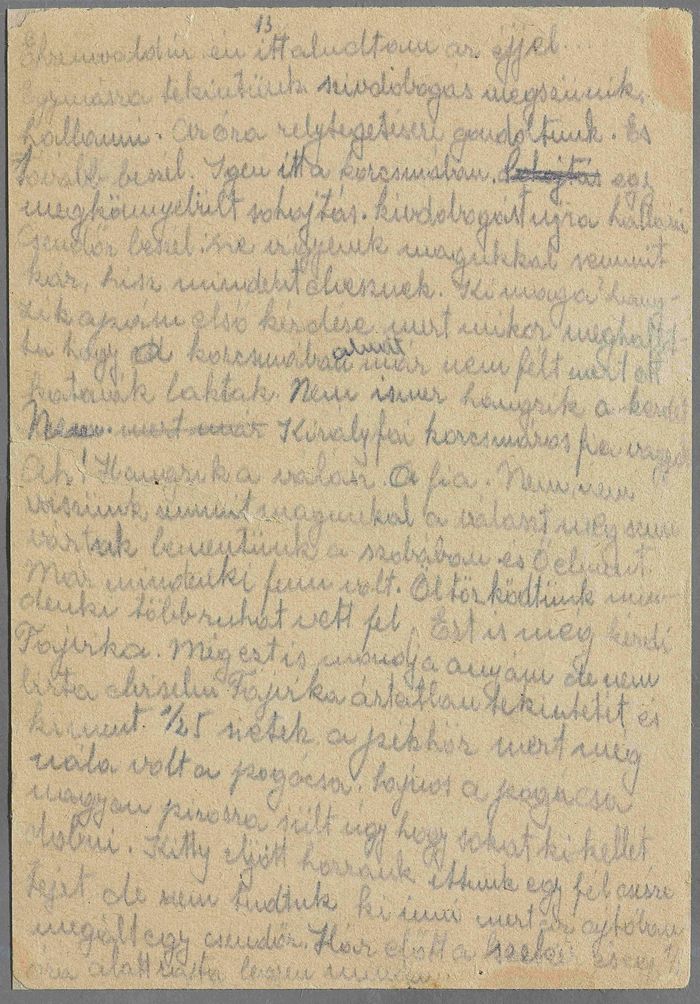 13
Ehrenwald úr én itt aludtam az éjjel...
Egymásra tekintünk szivdobogás megszünik,
hallani. Az óra ketyegéseri gondoltunk. És
tovább beszél. Igen itt a korcsmában. egy
megkönnyebült sohajtás. kivdobogást ujra hallani
Csendőr beszél. ne vigyenek magukkal semmit
kár, hisz mindent elvesznek. Ki maga? hang-
zik apám első kérdése mert mikor meghallot-
ta hogy a korcsmában aludt már nem félt mert ott
katonák laktak. Nem ismer hangzik a kérdés
Nem. mert már Királyfai korcsmáros fia vagyok
Ah! Hangzik a válasz a fia. Nem, nem
veszünk semmit magunkal a választ még sem
vártuk bementünk a szobában és Ő elment.
Már mindenki fenn volt. Öltözködtünk min-
denki több ruhát vett fel. Ezt is meg kérdi
Tajirka. Még ezt is mondja anyám de nem
birta elviselni Tajirka ártatlan tekintetét és
kiment. 1/25 sietek a pékhöz mert még
nála volt a pogácsa. Sajnos a pogácsa
nagyon pirosra sült úgy hogy sokat ki kellet
dobni. Kitty eljött hozzánk ittunk egy fél csésze
tejet de nem tudtuk ki inni mert az ajtóban
megált egy csendőr. Már eljött a és egy 1/2
óra alatt rajta legyen minden